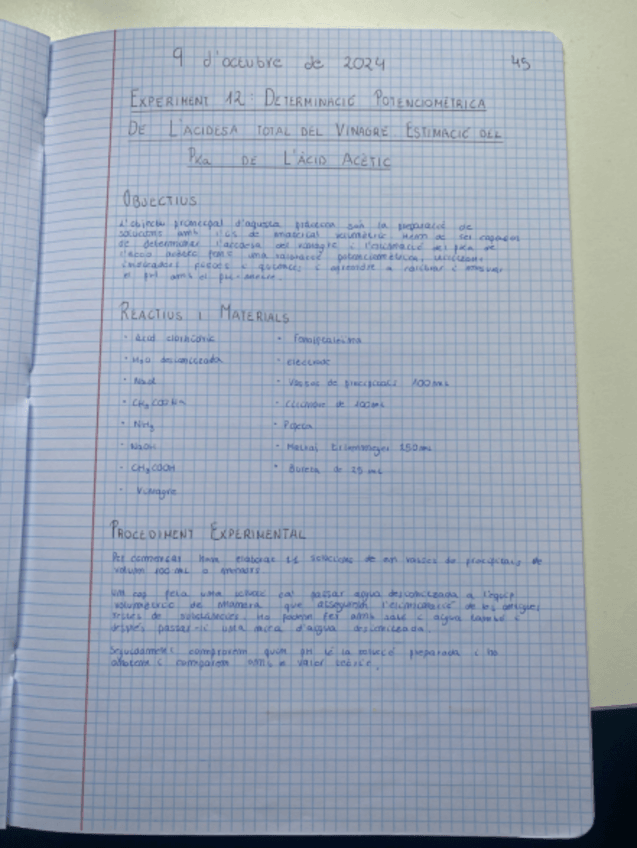 9 d'octubre de 2024
45
EXPERIMENT 12: DETERMINACIÓ POTENCIOMÈTRICA
DE L'ACIDESA TOTAL DEL VINAGRE ESTIMACIÓ DEL
PKa DE L'ÀCID ACÈTIC
OBJECTIUS
L'objectiu principal d'aquesta pràctica són la preparació de
solucions amb l'ús de material volumètric. Hem de ser capaços
de determinar l'acidesa del vinagre i l'estimació del pka de
l'àcid acètic fent una valoració potenciomètrica, utilitzant
indicadors físics i químics i aprendre a calibrar i mesurar
el pH amb el pH-metre.
REACTIUS I MATERIALS
· Àcid clorhídric
· Fenolftaleïna
· H2O desionitzada
· elèctrode
· NaCl
· Vasos de precipitats 100 mL
· CH3COONa
· Cilindre de 100 mL
· NH3
· Pipeta
· NaOH
· Matràs Erlenmeyer 250 mL
· CH3COOH
· Bureta de 25 mL
· Vinagre
PROCEDIMENT EXPERIMENTAL
Per començar hem elaborar 11 solucions de en vasos de precipitats de
volum 100 mL o
Un cop feta una solució cal passar aigua desionitzada a l'equip
volumètric de manera que assegurem l'eliminació de les antigues
restes de substàncies. Ho podem fer amb sabó i aigua també i
després passar-li una mica d'aigua desionitzada.
Seguidament comprovem quin pH té la solució preparada i ho
anotem i comparem amb el valor teòric.